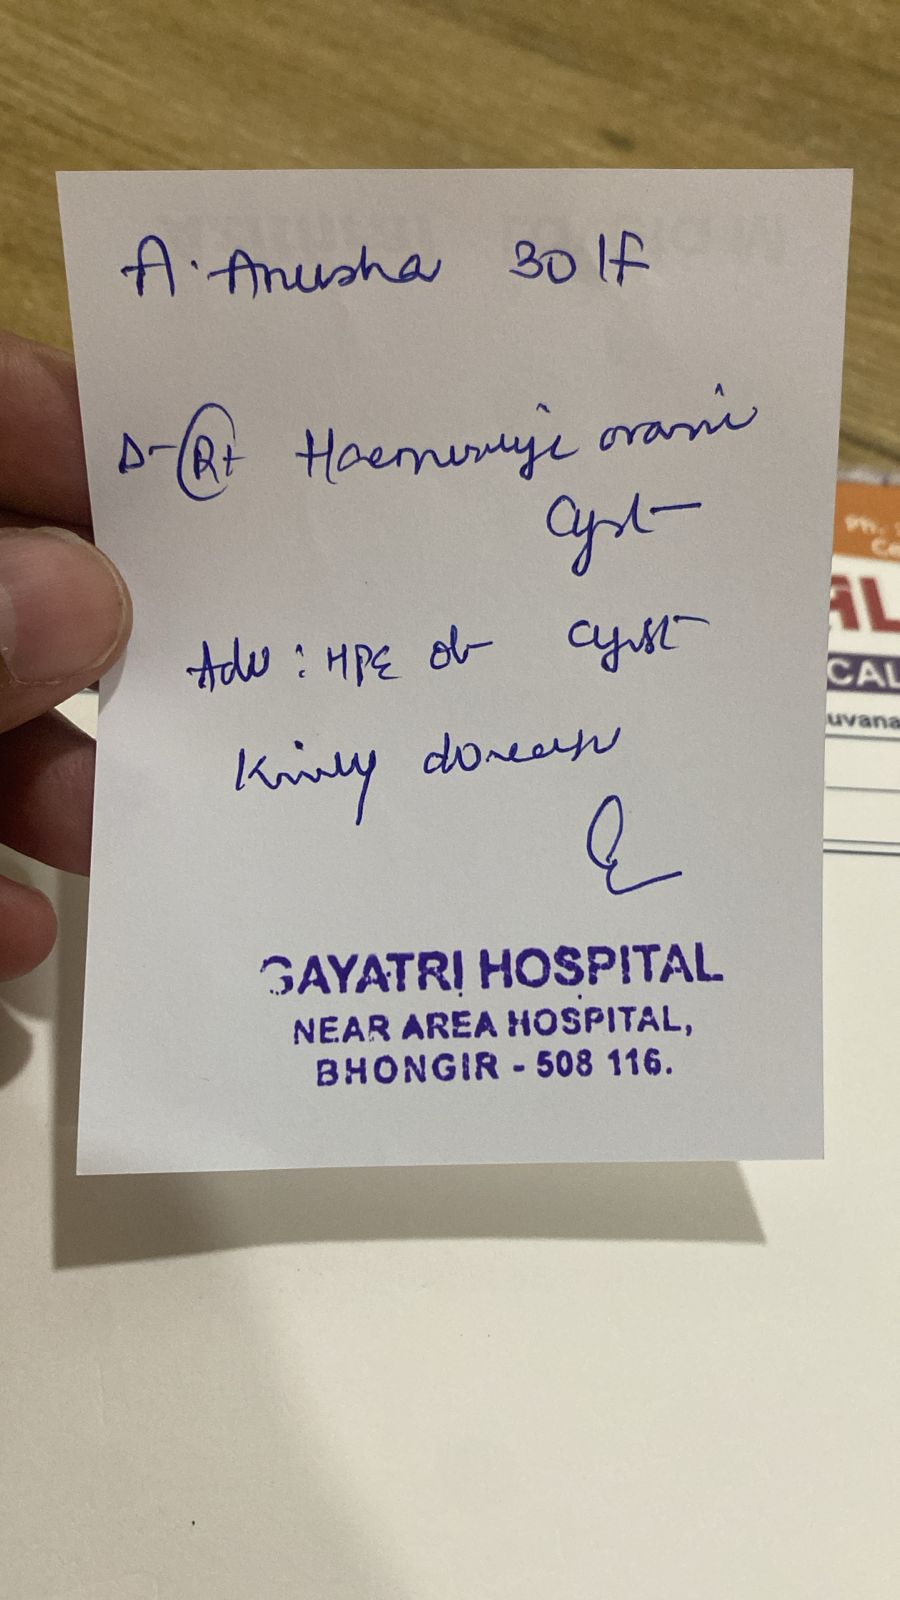 A. Anusha 30/F
D- Rt Haemorrhagic ovarian
Cyst
Adv: HPE of cyst
Kindly do needful
GAYATRI HOSPITAL
NEAR AREA HOSPITAL,
BHONGIR - 508 116.
AL
CAL
uvana